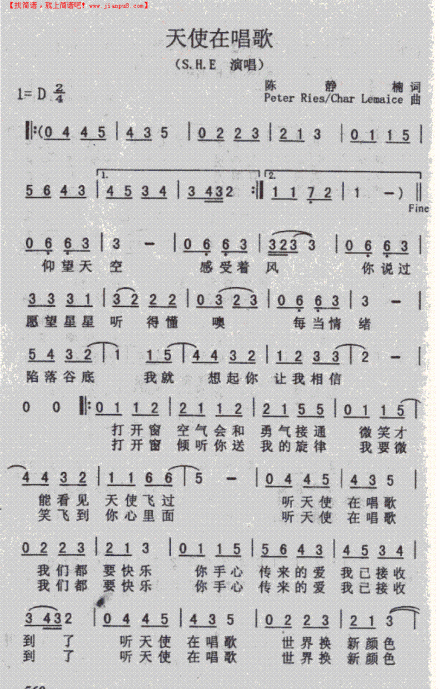 【找简谱，就上简谱吧！www.jianpu8.com】
天使在唱歌
（S.H.E 演唱）
陈静楠 词
1= D 2/4 Peter Ries/Char Lemaice 曲
‖:(0 4 4 5 | 4 3 5 | 0 2 2 3 | 2 1 3 | 0 1 1 5 |
5 6 4 3 | 1. 4 5 3 4 | 3 4 3 2 :‖ 2. 1 1 7 2 | 1 - ) ‖
Fine
0 6 6 3 | 3 - | 0 6 6 3 | 3 2 3 3 | 0 6 6 3 |
仰望天 空 感受着 风 你说过
3 3 3 1 | 3 2 2 2 | 0 3 2 3 | 0 6 6 3 | 3 - |
愿望星星 听 得懂 噢 每当情 绪
5 4 3 2 | 1 1 5 | 4 4 3 2 | 1 3 2 3 | 2 - |
陷落谷底 我就 想起你 让我相信
0 0 ‖: 0 1 2 1 | 2 1 1 2 | 2 1 5 5 | 0 1 1 5 |
打开窗 空气会和 勇气接通 微笑才
打开窗 倾听你送 我的旋律 我要微
4 4 3 2 | 1 1 6 6 | 5 - | 0 4 4 5 | 4 3 5 |
能看见 天使飞过 听天使 在唱歌
笑飞到 你心里面 听天使 在唱歌
0 2 2 3 | 2 1 3 | 0 1 1 5 | 5 6 4 3 | 4 5 3 4 |
我们都 要快乐 你手心 传来的爱 我已接收
我们都 要快乐 你手心 传来的爱 我已接收
3 4 3 2 | 0 4 4 5 | 4 3 5 | 0 2 2 3 | 2 1 3 |
到 了 听天使 在唱歌 世界换 新颜色
到 了 听天使 在唱歌 世界换 新颜色